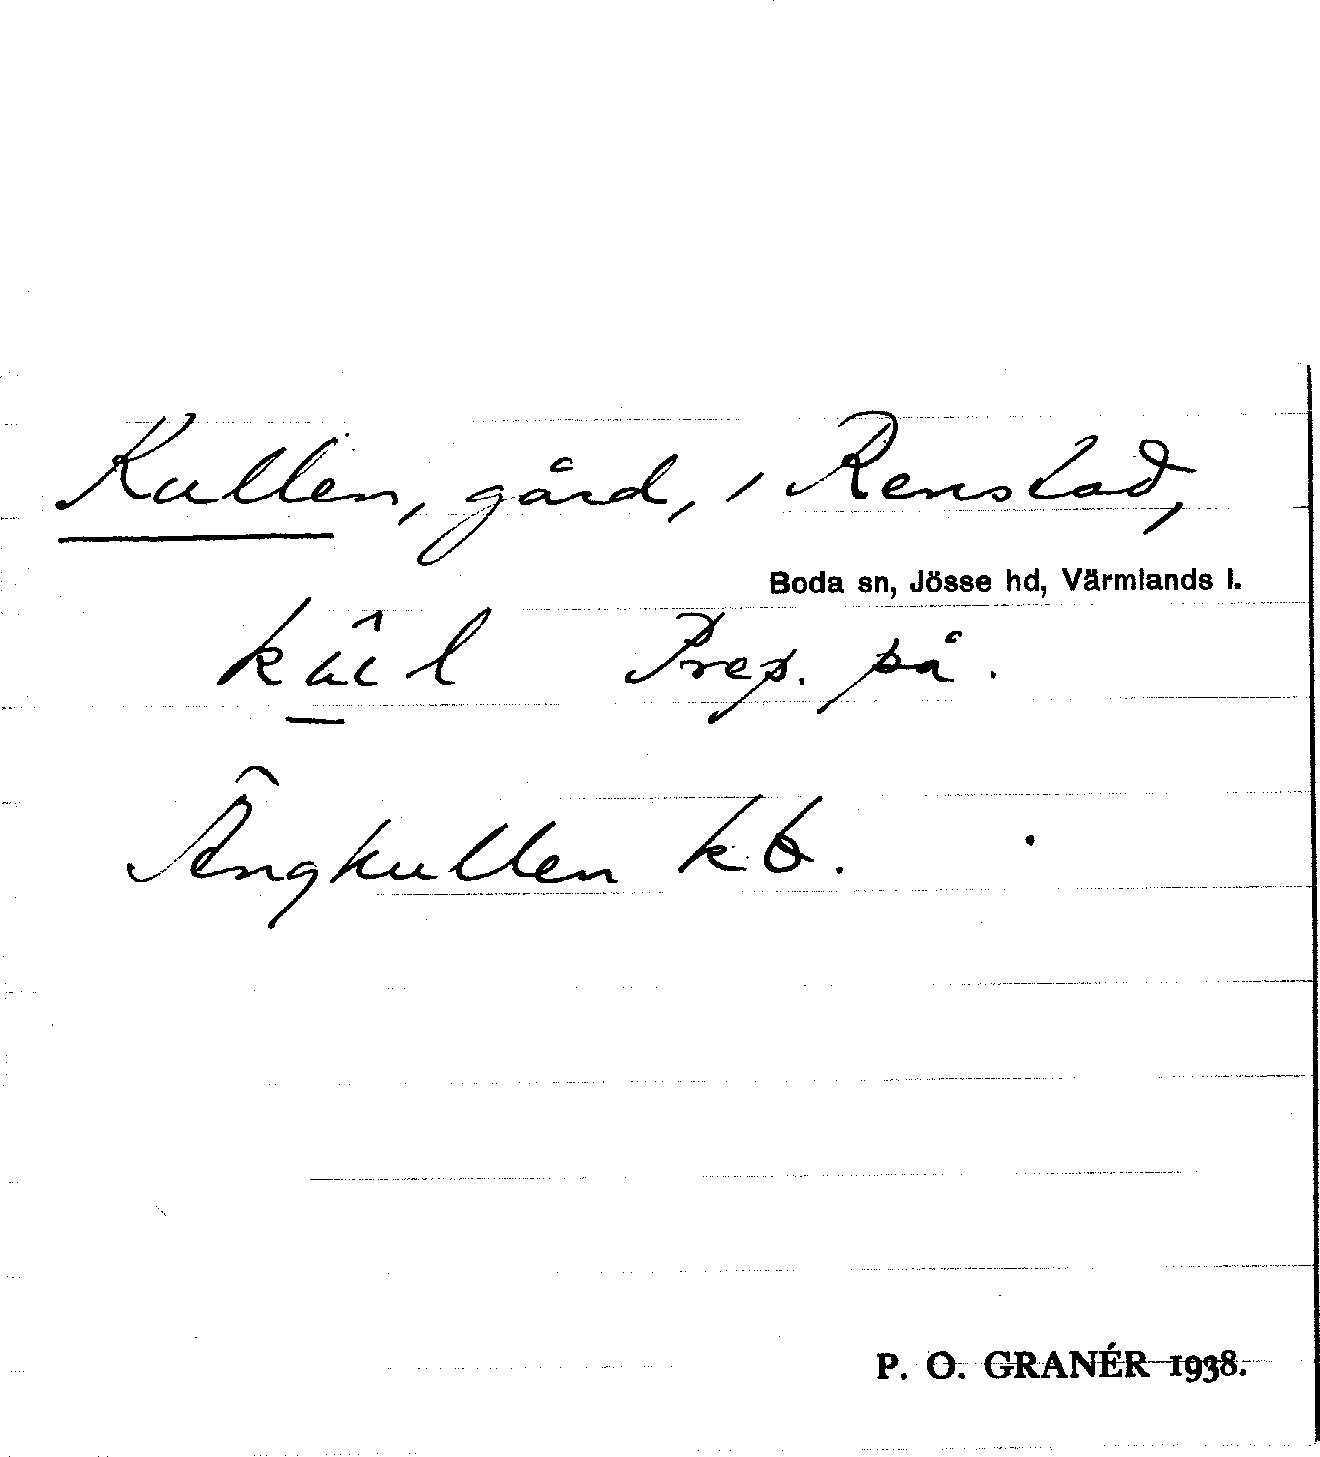 Kullen, gård, i Renstad,
Boda sn, Jösse hd, Värmlands l.
Prep. på.
Ängkullen kb.
P. O. GRANÉR 1938.